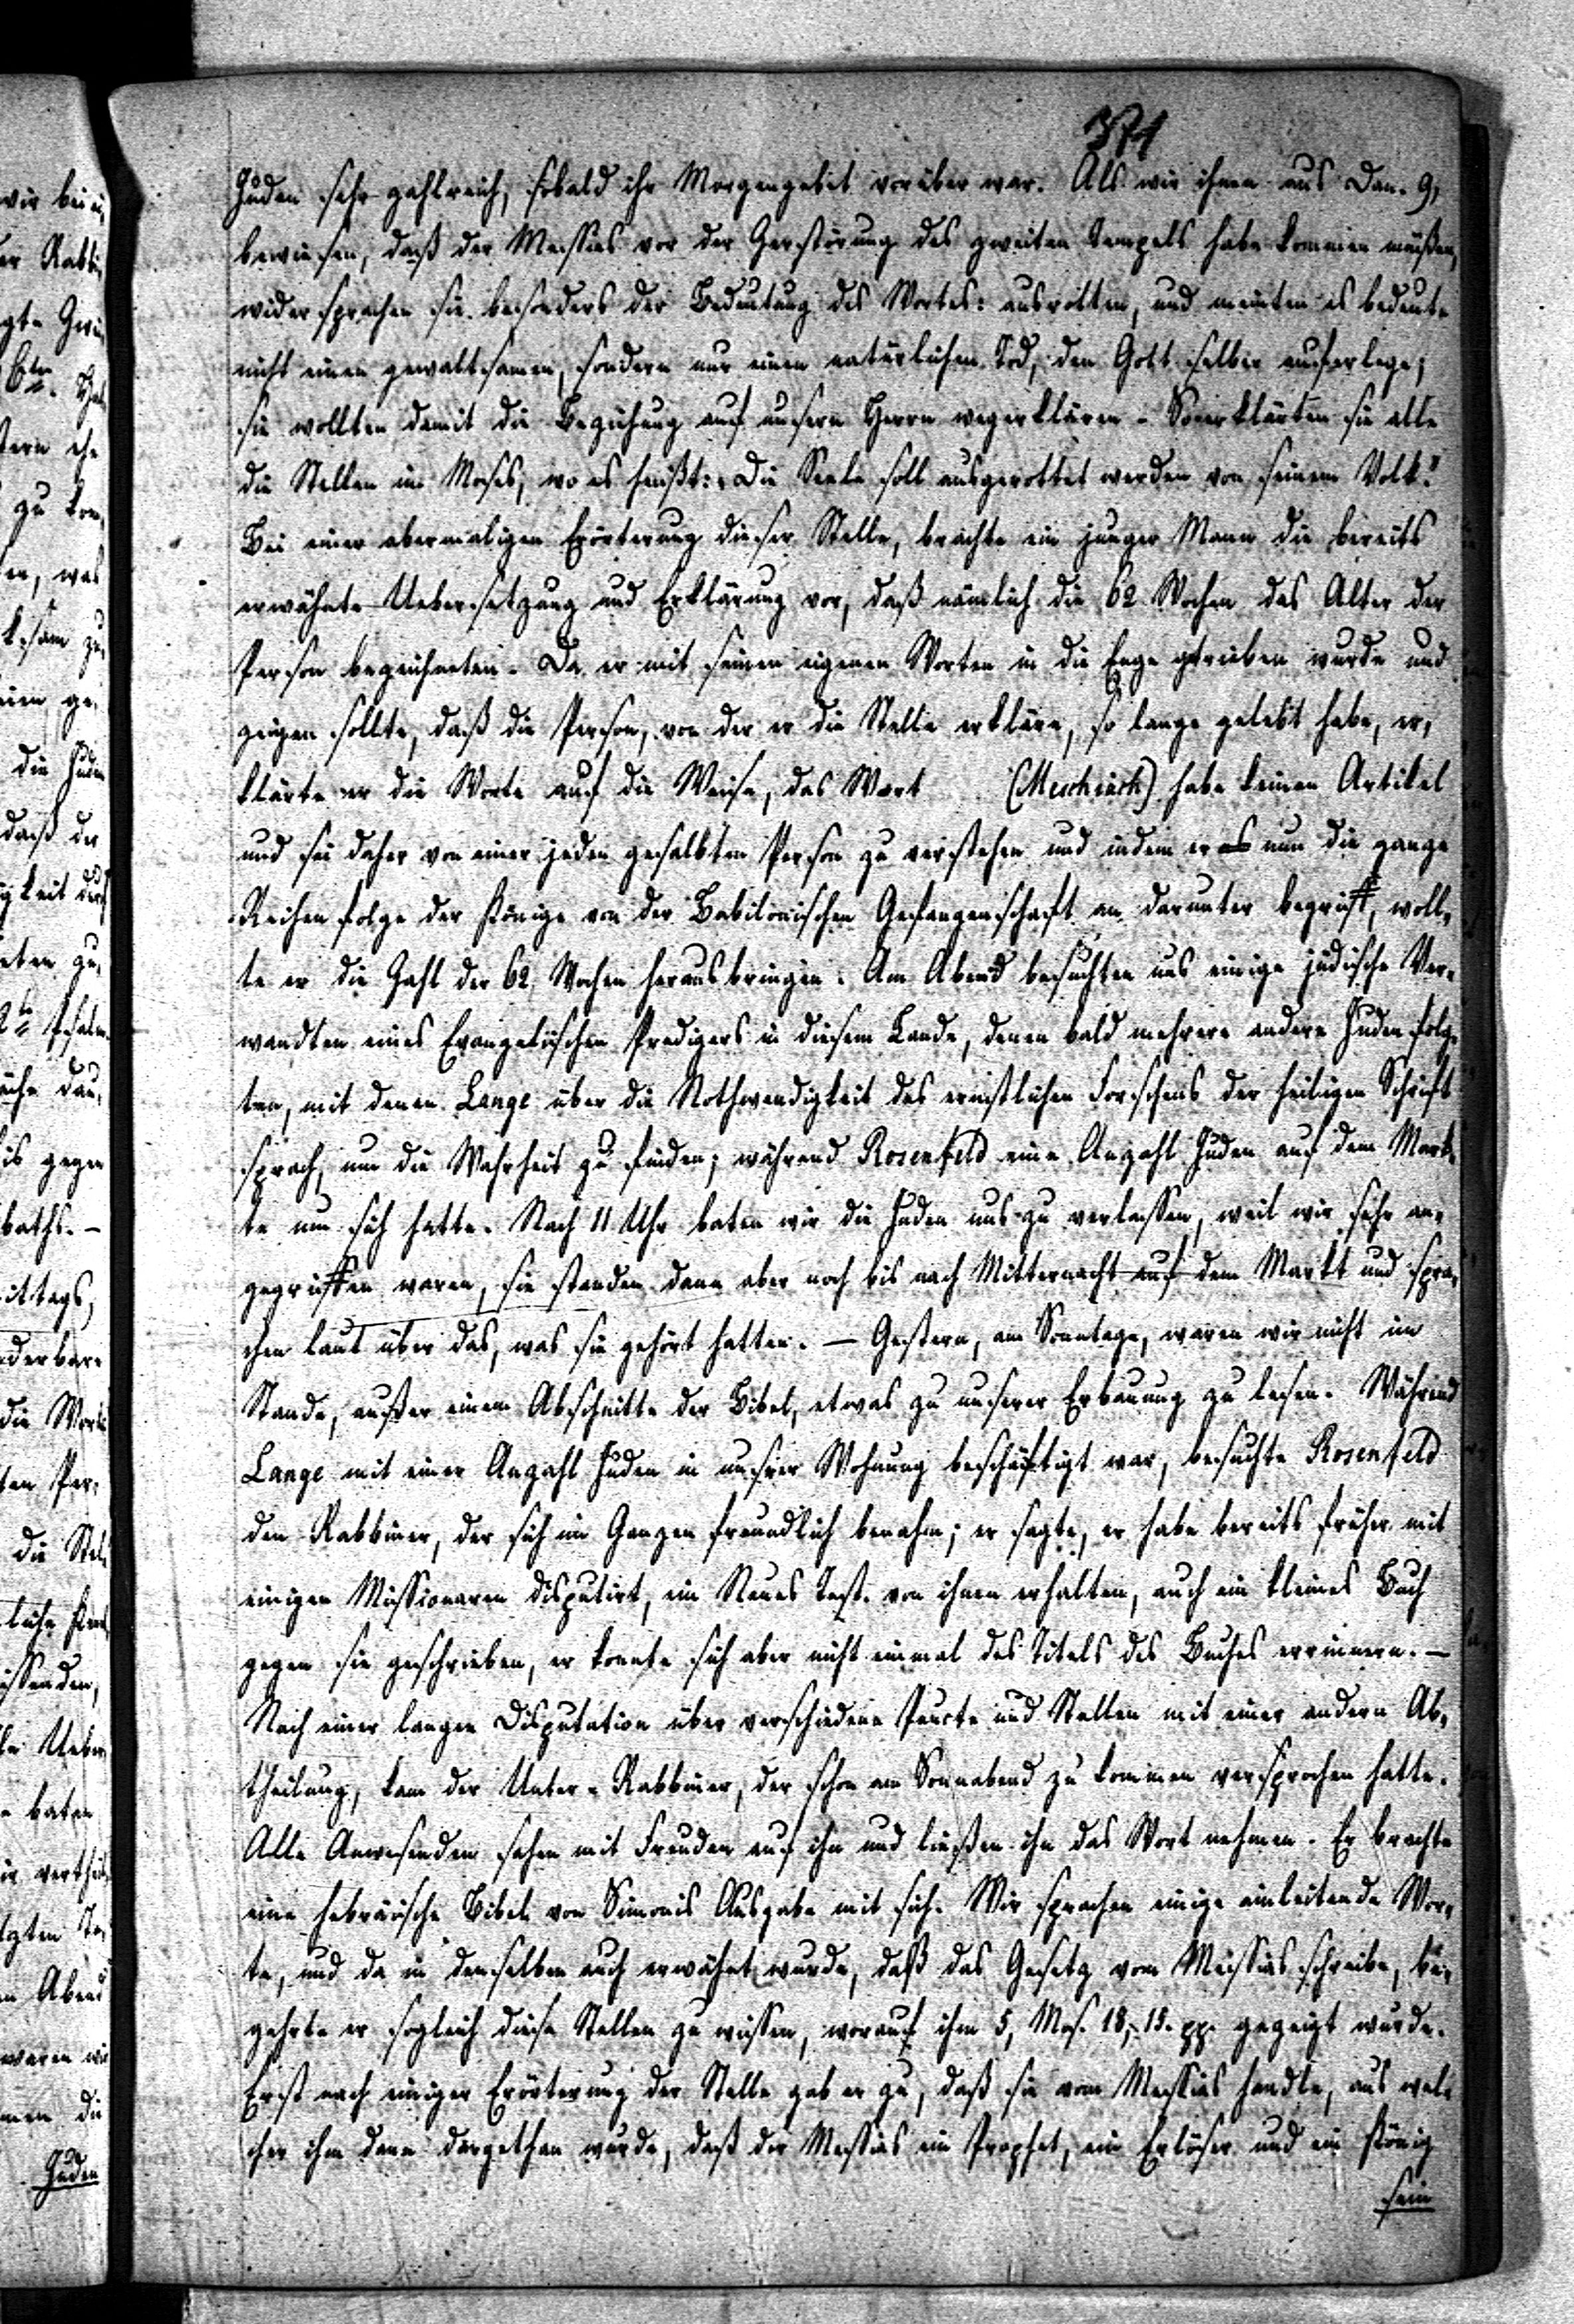 374
Juden sehr zahlreich, sobald ihr Morgengebet vorüber war. Als wir ihnen aus Dan. 9,
bewiesen, daß der Messias vor der Zerstörung des zweiten Tempels habe kommen müßen,
widersprachen sie besonders der Bedeutung des Wortes: ausrotten, und meinten es bedeute
nicht einen gewaltsamen, sondern nur einen natürlichen Tod, den Gott selber auferlege;
sie wollten damit die Beziehung auf unsern Herrn wegerklären. So erklärten sie alle
die Stellen im Moses, wo es heißt: „Die Seele soll ausgerottet werden von seinem Volk."
Bei einer abermaligen Erörterung dieser Stelle, brachte ein junger Mann die bereits
erwähnte Uebersetzung und Erklärung vor, daß nämlich die 62 Wochen das Alter der
Person bezeichneten. Da er mit seinen eigenen Worten in die Enge getrieben wurde und
zeigen sollte, daß die Person, von der er die Stelle erkläre, so lange gelebt habe, er,
klärte er die Worte auf die Weise, das Wort (Meschiach) habe keinen Artikel
und sei daher von einer jeden gesalbten Person zu verstehen und indem er nun die ganze
Reihenfolge der Könige von der Babilonischen Gefangenschaft an darunter begriff, woll,
te er die Zahl der 62 Wochen herausbringen. Am Abend besuchten uns einige jüdische Ver,
wandten eines Evangelischen Predigers in diesem Lande, denen bald mehrere andere Juden folg,
ten, mit denen Lange über die Nothwendigkeit des ernstlichen Forschens der heiligen Schrift
sprach, um die Wahrheit zu finden; während Rosenfeld eine Anzahl Juden auf dem Mark,
te um sich hatte. Nach 11 Uhr baten wir die Juden uns zu verlassen, weil wir sehr an,
gegriffen waren, sie standen dann aber noch bis nach Mitternacht auf dem Markt und spra,
chen laut über das, was sie gehört hatten. — Gestern, am Sonntage, waren wir nicht im
Stande, außer einem Abschnitte der Bibel, etwas zu unserer Erbauung zu lesen. Während
Lange mit einer Anzahl Juden in unserer Wohnung beschäftigt war, besuchte Rosenfeld
den Rabbiner, der sich im Ganzen freundlich benahm; er sagte, er habe bereits früher mit
einigen Missionaren disputirt, ein Neues Test. von ihnen erhalten, auch ein kleines Buch
gegen sie geschrieben, er konnte sich aber nicht einmal des Titels des Buches errinnern. —
Nach einer langen Disputation über verschiedene Puncte und Stellen mit einer andern Ab,
theilung, kam der Unter-Rabbiner, der schon am Sonnabend zu kommen versprochen hatte.
Alle Anwesenden sahen mit Freuden auf ihn und ließen ihn das Wort nehmen. Er brachte
eine hebräische Bibel von Simonis Ausgabe mit sich. Wir sprachen einige einleitende Wor,
te, und da in denselben auch erwähnt wurde, daß das Gesetz vom Messias schreibe, be,
gehrte er sogleich diese Stellen zu wissen, worauf ihm 5, Mos. 18, 18. pp. gezeigt wurde.
Erst nach einiger Erörterung der Stelle gab er zu, daß sie vom Messias handle, aus wel,
cher ihm dann dargethan wurde, daß der Messias ein Prophet, ein Erlöser und ein König
sein